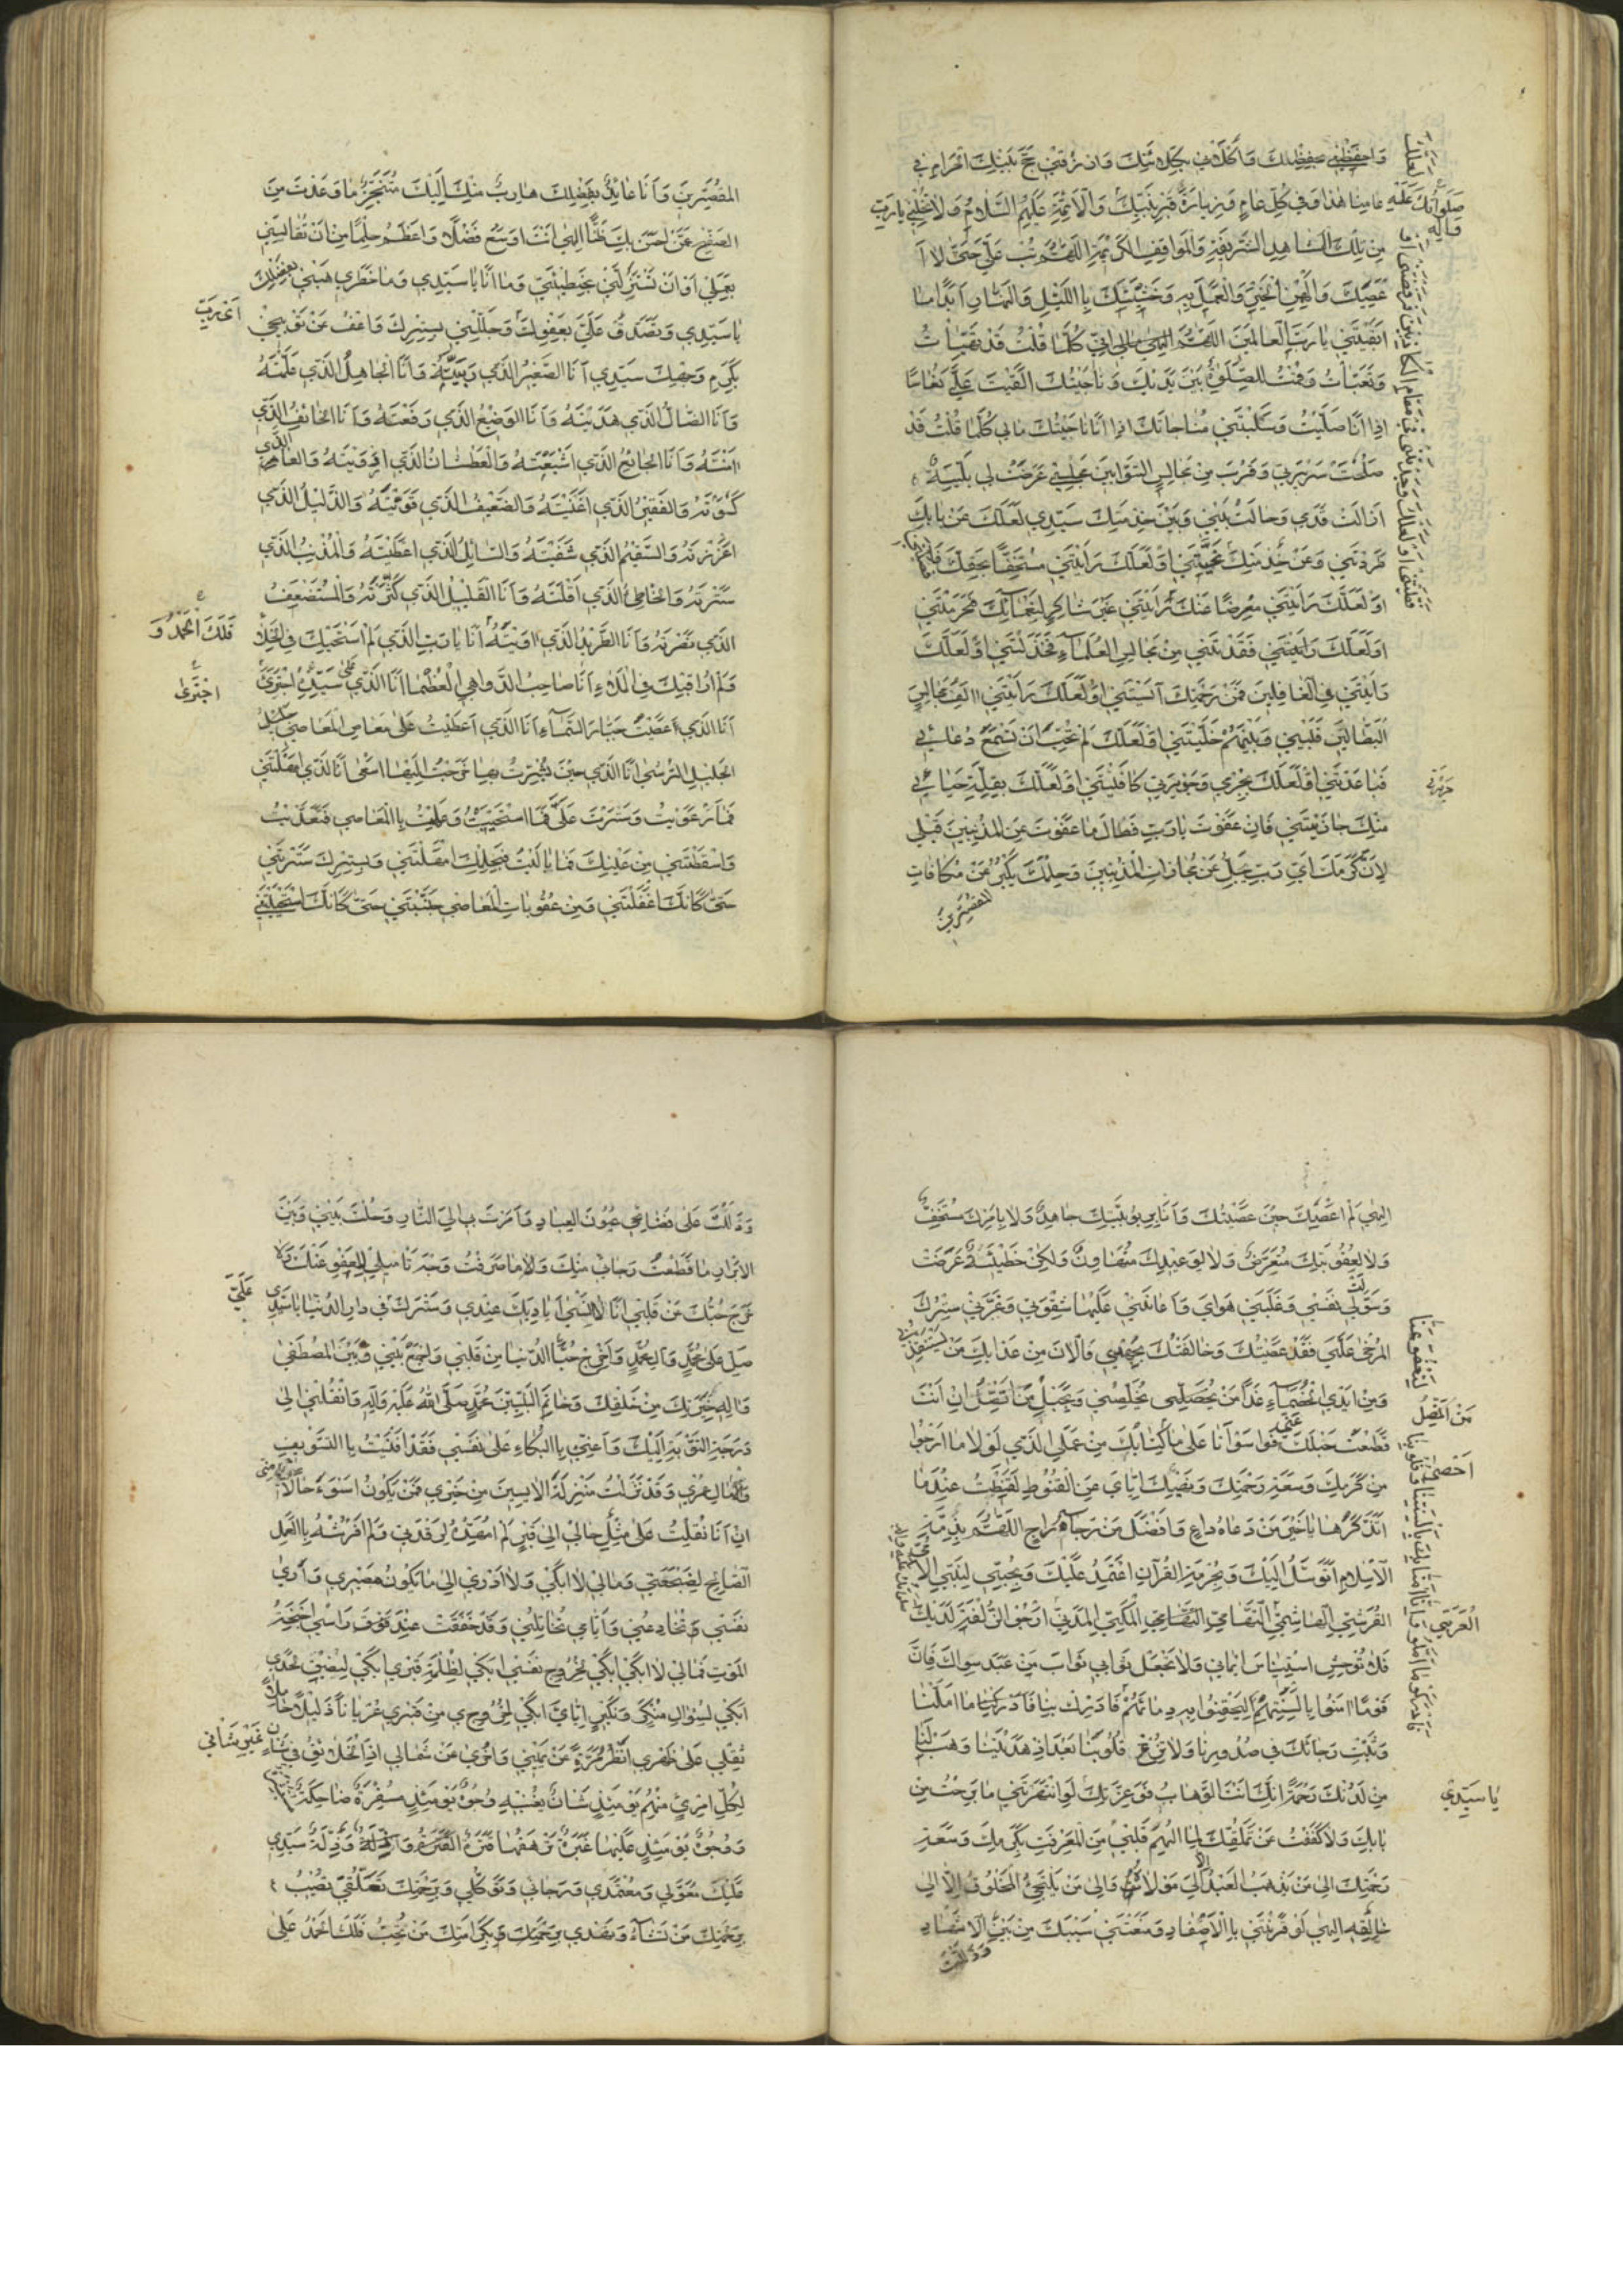 وَاحْفَظْنِي بِحِفْظِكَ وَاكْلَأْنِي بِكِلَائَتِكَ وَارْزُقْنِي حَجَّ بَيْتِكَ الْحَرَامِ فِي
عَامِنَا هٰذَا وَفِي كُلِّ عَامٍ وَزِيَارَةَ قَبْرِ نَبِيِّكَ وَالْأَئِمَّةِ عَلَيْهِمُ السَّلَامُ وَلَا تُخْلِنِي يَا رَبِّ
مِنْ تِلْكَ الْمَشَاهِدِ الشَّرِيفَةِ وَالْمَوَاقِفِ الْكَرِيمَةِ اللَّهُمَّ تُبْ عَلَيَّ حَتَّى لَا
أَعْصِيَكَ وَأَلْهِمْنِي الْخَيْرَ وَالْعَمَلَ بِهِ وَخَشْيَتَكَ بِاللَّيْلِ وَالنَّهَارِ أَبَدًا مَا
أَبْقَيْتَنِي يَا رَبَّ الْعَالَمِينَ اللَّهُمَّ إِنِّي كُلَّمَا قُلْتُ قَدْ تَهَيَّأْتُ
وَتَعَبَّأْتُ وَقُمْتُ لِلصَّلَوٰةِ بَيْنَ يَدَيْكَ وَنَاجَيْتُكَ أَلْقَيْتَ عَلَيَّ نُعَاسًا
إِذَا أَنَا صَلَّيْتُ وَسَلَبْتَنِي مُنَاجَاتَكَ إِذَا أَنَا نَاجَيْتُكَ مَا لِي كُلَّمَا قُلْتُ قَدْ
صَلُحَتْ سَرِيرَتِي وَقَرُبَ مِنْ مَجَالِسِ التَّوَّابِينَ مَجْلِسِي عَرَضَتْ لِي بَلِيَّةٌ
أَزَالَتْ قَدَمِي وَحَالَتْ بَيْنِي وَبَيْنَ خِدْمَتِكَ سَيِّدِي لَعَلَّكَ عَنْ بَابِكَ
طَرَدْتَنِي وَعَنْ خِدْمَتِكَ نَحَّيْتَنِي أَوْ لَعَلَّكَ رَأَيْتَنِي مُسْتَخِفًّا بِحَقِّكَ فَأَقْصَيْتَنِي
أَوْ لَعَلَّكَ رَأَيْتَنِي مُعْرِضًا عَنْكَ أَوْ لَعَلَّكَ رَأَيْتَنِي غَيْرَ شَاكِرٍ لِنَعْمَائِكَ فَحَرَمْتَنِي
أَوْ لَعَلَّكَ فَقَدْتَنِي مِنْ مَجَالِسِ الْعُلَمَاءِ فَخَذَلْتَنِي أَوْ لَعَلَّكَ
رَأَيْتَنِي فِي الْغَافِلِينَ فَمِنْ رَحْمَتِكَ آيَسْتَنِي أَوْ لَعَلَّكَ رَأَيْتَنِي آلَفُ مَجَالِسَ
الْبَطَّالِينَ فَبَيْنِي وَبَيْنَهُمْ خَلَّيْتَنِي أَوْ لَعَلَّكَ لَمْ تُحِبَّ أَنْ تَسْمَعَ دُعَائِي
فَبَاعَدْتَنِي أَوْ لَعَلَّكَ بِجُرْمِي وَجَرِيرَتِي كَافَيْتَنِي أَوْ لَعَلَّكَ بِقِلَّةِ حَيَائِي
مِنْكَ جَازَيْتَنِي فَإِنْ عَفَوْتَ يَا رَبِّ فَطَالَ مَا عَفَوْتَ عَنِ الْمُذْنِبِينَ قَبْلِي
لِأَنَّ كَرَمَكَ أَيْ رَبِّ يَجِلُّ عَنْ مُجَازَاتِ الْمُذْنِبِينَ وَحِلْمَكَ يَكْبُرُ عَنْ مُكَافَاتِ
المُقَصِّرِينَ
صَلَوَاتُكَ عَلَيْهِ وَآلِهِ
الْمُقَصِّرِينَ وَأَنَا عَائِذٌ بِفَضْلِكَ هَارِبٌ مِنْكَ إِلَيْكَ مُتَنَجِّزٌ مَا وَعَدْتَ مِنَ
الصَّفْحِ عَمَّنْ أَحْسَنَ بِكَ ظَنًّا إِلٰهِي أَنْتَ أَوْسَعُ فَضْلًا وَأَعْظَمُ حِلْمًا مِنْ أَنْ تُقَايِسَنِي
بِعَمَلِي أَوْ أَنْ تَسْتَزِلَّنِي بِخَطِيئَتِي وَمَا أَنَا يَا سَيِّدِي وَمَا خَطَرِي هَبْنِي بِفَضْلِكَ
يَا سَيِّدِي وَتَصَدَّقْ عَلَيَّ بِعَفْوِكَ وَجَلِّلْنِي بِسِتْرِكَ وَاعْفُ عَنْ تَوْبِيخِي
بِكَرَمِ وَجْهِكَ سَيِّدِي أَنَا الصَّغِيرُ الَّذِي رَبَّيْتَهُ وَأَنَا الْجَاهِلُ الَّذِي عَلَّمْتَهُ
وَأَنَا الضَّالُّ الَّذِي هَدَيْتَهُ وَأَنَا الْوَضِيعُ الَّذِي رَفَعْتَهُ وَأَنَا الْخَائِفُ الَّذِي
آمَنْتَهُ وَأَنَا الْجَائِعُ الَّذِي أَشْبَعْتَهُ وَالْعَطْشَانُ الَّذِي أَرْوَيْتَهُ وَالْعَارِي الَّذِي
كَسَوْتَهُ وَالْفَقِيرُ الَّذِي أَغْنَيْتَهُ وَالضَّعِيفُ الَّذِي قَوَّيْتَهُ وَالذَّلِيلُ الَّذِي
أَعْزَزْتَهُ وَالسَّقِيمُ الَّذِي شَفَيْتَهُ وَالسَّائِلُ الَّذِي أَعْطَيْتَهُ وَالْمُذْنِبُ الَّذِي
سَتَرْتَهُ وَالْخَاطِئُ الَّذِي أَقَلْتَهُ وَأَنَا الْقَلِيلُ الَّذِي كَثَّرْتَهُ وَالْمُسْتَضْعَفُ
الَّذِي نَصَرْتَهُ وَأَنَا الطَّرِيدُ الَّذِي آوَيْتَهُ أَنَا يَا رَبِّ الَّذِي لَمْ أَسْتَحْيِكَ فِي الْخَلَاءِ
وَلَمْ أُرَاقِبْكَ فِي الْمَلَاءِ أَنَا صَاحِبُ الدَّوَاهِي الْعُظْمَى أَنَا الَّذِي عَلَى سَيِّدِهِ اجْتَرَى
أَنَا الَّذِي عَصَيْتُ جَبَّارَ السَّمَاءِ أَنَا الَّذِي أَعْطَيْتُ عَلَى مَعَاصِي
الْجَلِيلِ الرُّشَى أَنَا الَّذِي حِينَ بُشِّرْتُ بِهَا خَرَجْتُ إِلَيْهَا أَسْعَى أَنَا الَّذِي أَمْهَلْتَنِي
فَمَا ارْعَوَيْتُ وَسَتَرْتَ عَلَيَّ فَمَا اسْتَحْيَيْتُ وَعَمِلْتُ بِالْمَعَاصِي فَتَعَدَّيْتُ
وَأَسْقَطْتَنِي مِنْ عَيْنِكَ فَمَا بَالَيْتُ فَبِحِلْمِكَ أَمْهَلْتَنِي وَبِسِتْرِكَ سَتَرْتَنِي
حَتَّى كَأَنَّكَ أَغْفَلْتَنِي وَمِنْ عُقُوبَاتِ الْمَعَاصِي جَنَّبْتَنِي حَتَّى كَأَنَّكَ اسْتَحْيَيْتَنِي
أَيْ رَبِّ
فَلَكَ الْحَمْدُ وَ
اجْتَرَى
إِلٰهِي لَمْ أَعْصِكَ حِينَ عَصَيْتُكَ وَأَنَا بِرُبُوبِيَّتِكَ جَاهِدٌ وَلَا بِأَمْرِكَ مُسْتَخِفٌّ
وَلَا لِعُقُوبَتِكَ مُتَعَرِّضٌ وَلَا لِوَعِيدِكَ مُتَهَاوِنٌ وَلٰكِنْ خَطِيئَةٌ عَرَضَتْ
وَسَوَّلَتْ لِي نَفْسِي وَغَلَبَنِي هَوَايَ وَأَعَانَنِي عَلَيْهَا شِقْوَتِي وَغَرَّنِي سِتْرُكَ
الْمُرْخَى عَلَيَّ فَقَدْ عَصَيْتُكَ وَخَالَفْتُكَ بِجُهْدِي وَالْآنَ مِنْ عَذَابِكَ مَنْ يَسْتَنْقِذُنِي
وَمِنْ أَيْدِي الْخُصَمَاءِ غَدًا مَنْ يُخَلِّصُنِي وَبِحَبْلِ مَنْ أَتَّصِلُ إِنْ أَنْتَ
قَطَعْتَ حَبْلَكَ عَنِّي فَوَا سَوْأَتَا عَلَى مَا كِتَابُكَ مِنْ عَمَلِي الَّذِي لَوْلَا مَا أَرْجُوا
مِنْ كَرَمِكَ وَسَعَةِ رَحْمَتِكَ وَنَهْيِكَ إِيَّايَ عَنِ الْقُنُوطِ لَقَنَطْتُ عِنْدَمَا
أَتَذَكَّرُهَا يَا خَيْرَ مَنْ دَعَاهُ دَاعٍ وَأَفْضَلَ مَنْ رَجَاهُ رَاجٍ اللَّهُمَّ بِذِمَّةِ
الْإِسْلَامِ أَتَوَسَّلُ إِلَيْكَ وَبِحُرْمَةِ الْقُرْآنِ أَعْتَمِدُ عَلَيْكَ وَبِحُبِّي لِنَبِيِّ الْأُمِّيِّ
الْقُرَشِيِّ الْهَاشِمِيِّ التِّهَامِيِّ الْمَكِّيِّ الْمَدَنِيِّ أَرْجُو الزُّلْفَةَ لَدَيْكَ
فَلَا تُوحِشْ اسْتِينَاسَ إِيمَانِي وَلَا تَجْعَلْ ثَوَابِي ثَوَابَ مَنْ عَبَدَ سِوَاكَ فَإِنَّ
قَوْمًا آمَنُوا بِأَلْسِنَتِهِمْ لِيَحْقِنُوا بِهِ دِمَائَهُمْ فَأَدْرَكُوا مَا أَمَّلُوا
وَثَبِّتْ رَجَاءَكَ فِي صُدُورِنَا وَلَا تُزِغْ قُلُوبَنَا بَعْدَ إِذْ هَدَيْتَنَا وَهَبْ لَنَا
مِنْ لَدُنْكَ رَحْمَةً إِنَّكَ أَنْتَ الْوَهَّابُ فَوَعِزَّتِكَ لَوِ انْتَهَرْتَنِي مَا بَرِحْتُ مِنْ
بَابِكَ وَلَا كَفَفْتُ عَنْ تَمَلُّقِكَ لِمَا أُلْهِمَ قَلْبِي مِنَ الْمَعْرِفَةِ بِكَرَمِكَ وَسَعَةِ
رَحْمَتِكَ إِلَى مَنْ يَذْهَبُ الْعَبْدُ إِلَّا إِلَى مَوْلَاهُ وَإِلَى مَنْ يَلْتَجِئُ الْمَخْلُوقُ إِلَّا إِلَى
خَالِقِهِ إِلٰهِي لَوْ قَرَنْتَنِي بِالْأَصْفَادِ وَمَنَعْتَنِي سَيْبَكَ مِنْ بَيْنِ الْأَشْهَادِ
وَدَلَلْتَ
أَحْصَى
الْعَرَبِيِّ
يَا سَيِّدِي
وَدَلَلْتَ عَلَى فَضَائِحِي عُيُونَ الْعِبَادِ وَأَمَرْتَ بِي إِلَى النَّارِ وَحُلْتَ بَيْنِي وَبَيْنَ
الْأَبْرَارِ مَا قَطَعْتُ رَجَائِي مِنْكَ وَلَا مَا صَرَفْتُ وَجْهَ تَأْمِيلِي لِلْعَفْوِ عَنْكَ وَلَا
خَرَجَ حُبُّكَ مِنْ قَلْبِي أَنَا لَا أَنْسَى أَيَادِيَكَ عِنْدِي وَسَتْرَكَ فِي دَارِ الدُّنْيَا يَا سَيِّدِي
صَلِّ عَلَى مُحَمَّدٍ وَآلِ مُحَمَّدٍ وَأَخْرِجْ حُبَّ الدُّنْيَا مِنْ قَلْبِي وَاجْمَعْ بَيْنِي وَبَيْنَ الْمُصْطَفَى
وَآلِهِ خِيَرَتِكَ مِنْ خَلْقِكَ وَخَاتَمِ النَّبِيِّينَ مُحَمَّدٍ صَلَّى اللهُ عَلَيْهِ وَآلِهِ وَانْقُلْنِي إِلَى
دَرَجَةِ التَّوْبَةِ إِلَيْكَ وَأَعِنِّي بِالْبُكَاءِ عَلَى نَفْسِي فَقَدْ أَفْنَيْتُ بِالتَّسْوِيفِ
وَالْآمَالِ عُمْرِي وَقَدْ نَزَلْتُ مَنْزِلَةَ الْآيِسِينَ مِنْ خَيْرِي فَمَنْ يَكُونُ أَسْوَءَ حَالًا مِنِّي
إِنْ أَنَا نُقِلْتُ عَلَى مِثْلِ حَالِي إِلَى قَبْرٍ لَمْ أُمَهِّدْهُ لِرَقْدَتِي وَلَمْ أَفْرُشْهُ بِالْعَمَلِ
الصَّالِحِ لِضَجْعَتِي وَمَا لِي لَا أَبْكِي وَلَا أَدْرِي إِلَى مَا يَكُونُ مَصِيرِي وَأَرَى
نَفْسِي تُخَادِعُنِي وَأَيَّامِي تُخَاتِلُنِي وَقَدْ خَفَقَتْ عِنْدَ فَوْقَ رَأْسِي أَجْنِحَةُ
الْمَوْتِ فَمَا لِي لَا أَبْكِي أَبْكِي لِخُرُوجِ نَفْسِي أَبْكِي لِظُلْمَةِ قَبْرِي أَبْكِي لِضِيقِ لَحْدِي
أَبْكِي لِسُؤَالِ مُنْكَرٍ وَنَكِيرٍ إِيَّايَ أَبْكِي لِخُرُوجِي مِنْ قَبْرِي عُرْيَانًا ذَلِيلًا حَامِلًا
ثِقْلِي عَلَى ظَهْرِي أَنْظُرُ مَرَّةً عَنْ يَمِينِي وَأُخْرَى عَنْ شِمَالِي إِذِ الْخَلَائِقُ فِي شَأْنٍ غَيْرِ شَأْنِي
لِكُلِّ امْرِئٍ مِنْهُمْ يَوْمَئِذٍ شَأْنٌ يُغْنِيهِ وُجُوهٌ يَوْمَئِذٍ مُسْفِرَةٌ ضَاحِكَةٌ
وَوُجُوهٌ يَوْمَئِذٍ عَلَيْهَا غَبَرَةٌ تَرْهَقُهَا قَتَرَةٌ وَذِلَّةٌ سَيِّدِي
عَلَيْكَ مُعَوَّلِي وَمُعْتَمَدِي وَرَجَائِي وَتَوَكُّلِي وَبِرَحْمَتِكَ تَعَلُّقِي تُصِيبُ
بِرَحْمَتِكَ مَنْ تَشَاءُ وَتَهْدِي بِكَرَامَتِكَ مَنْ تُحِبُّ فَلَكَ الْحَمْدُ عَلَى
عَلَيَّ